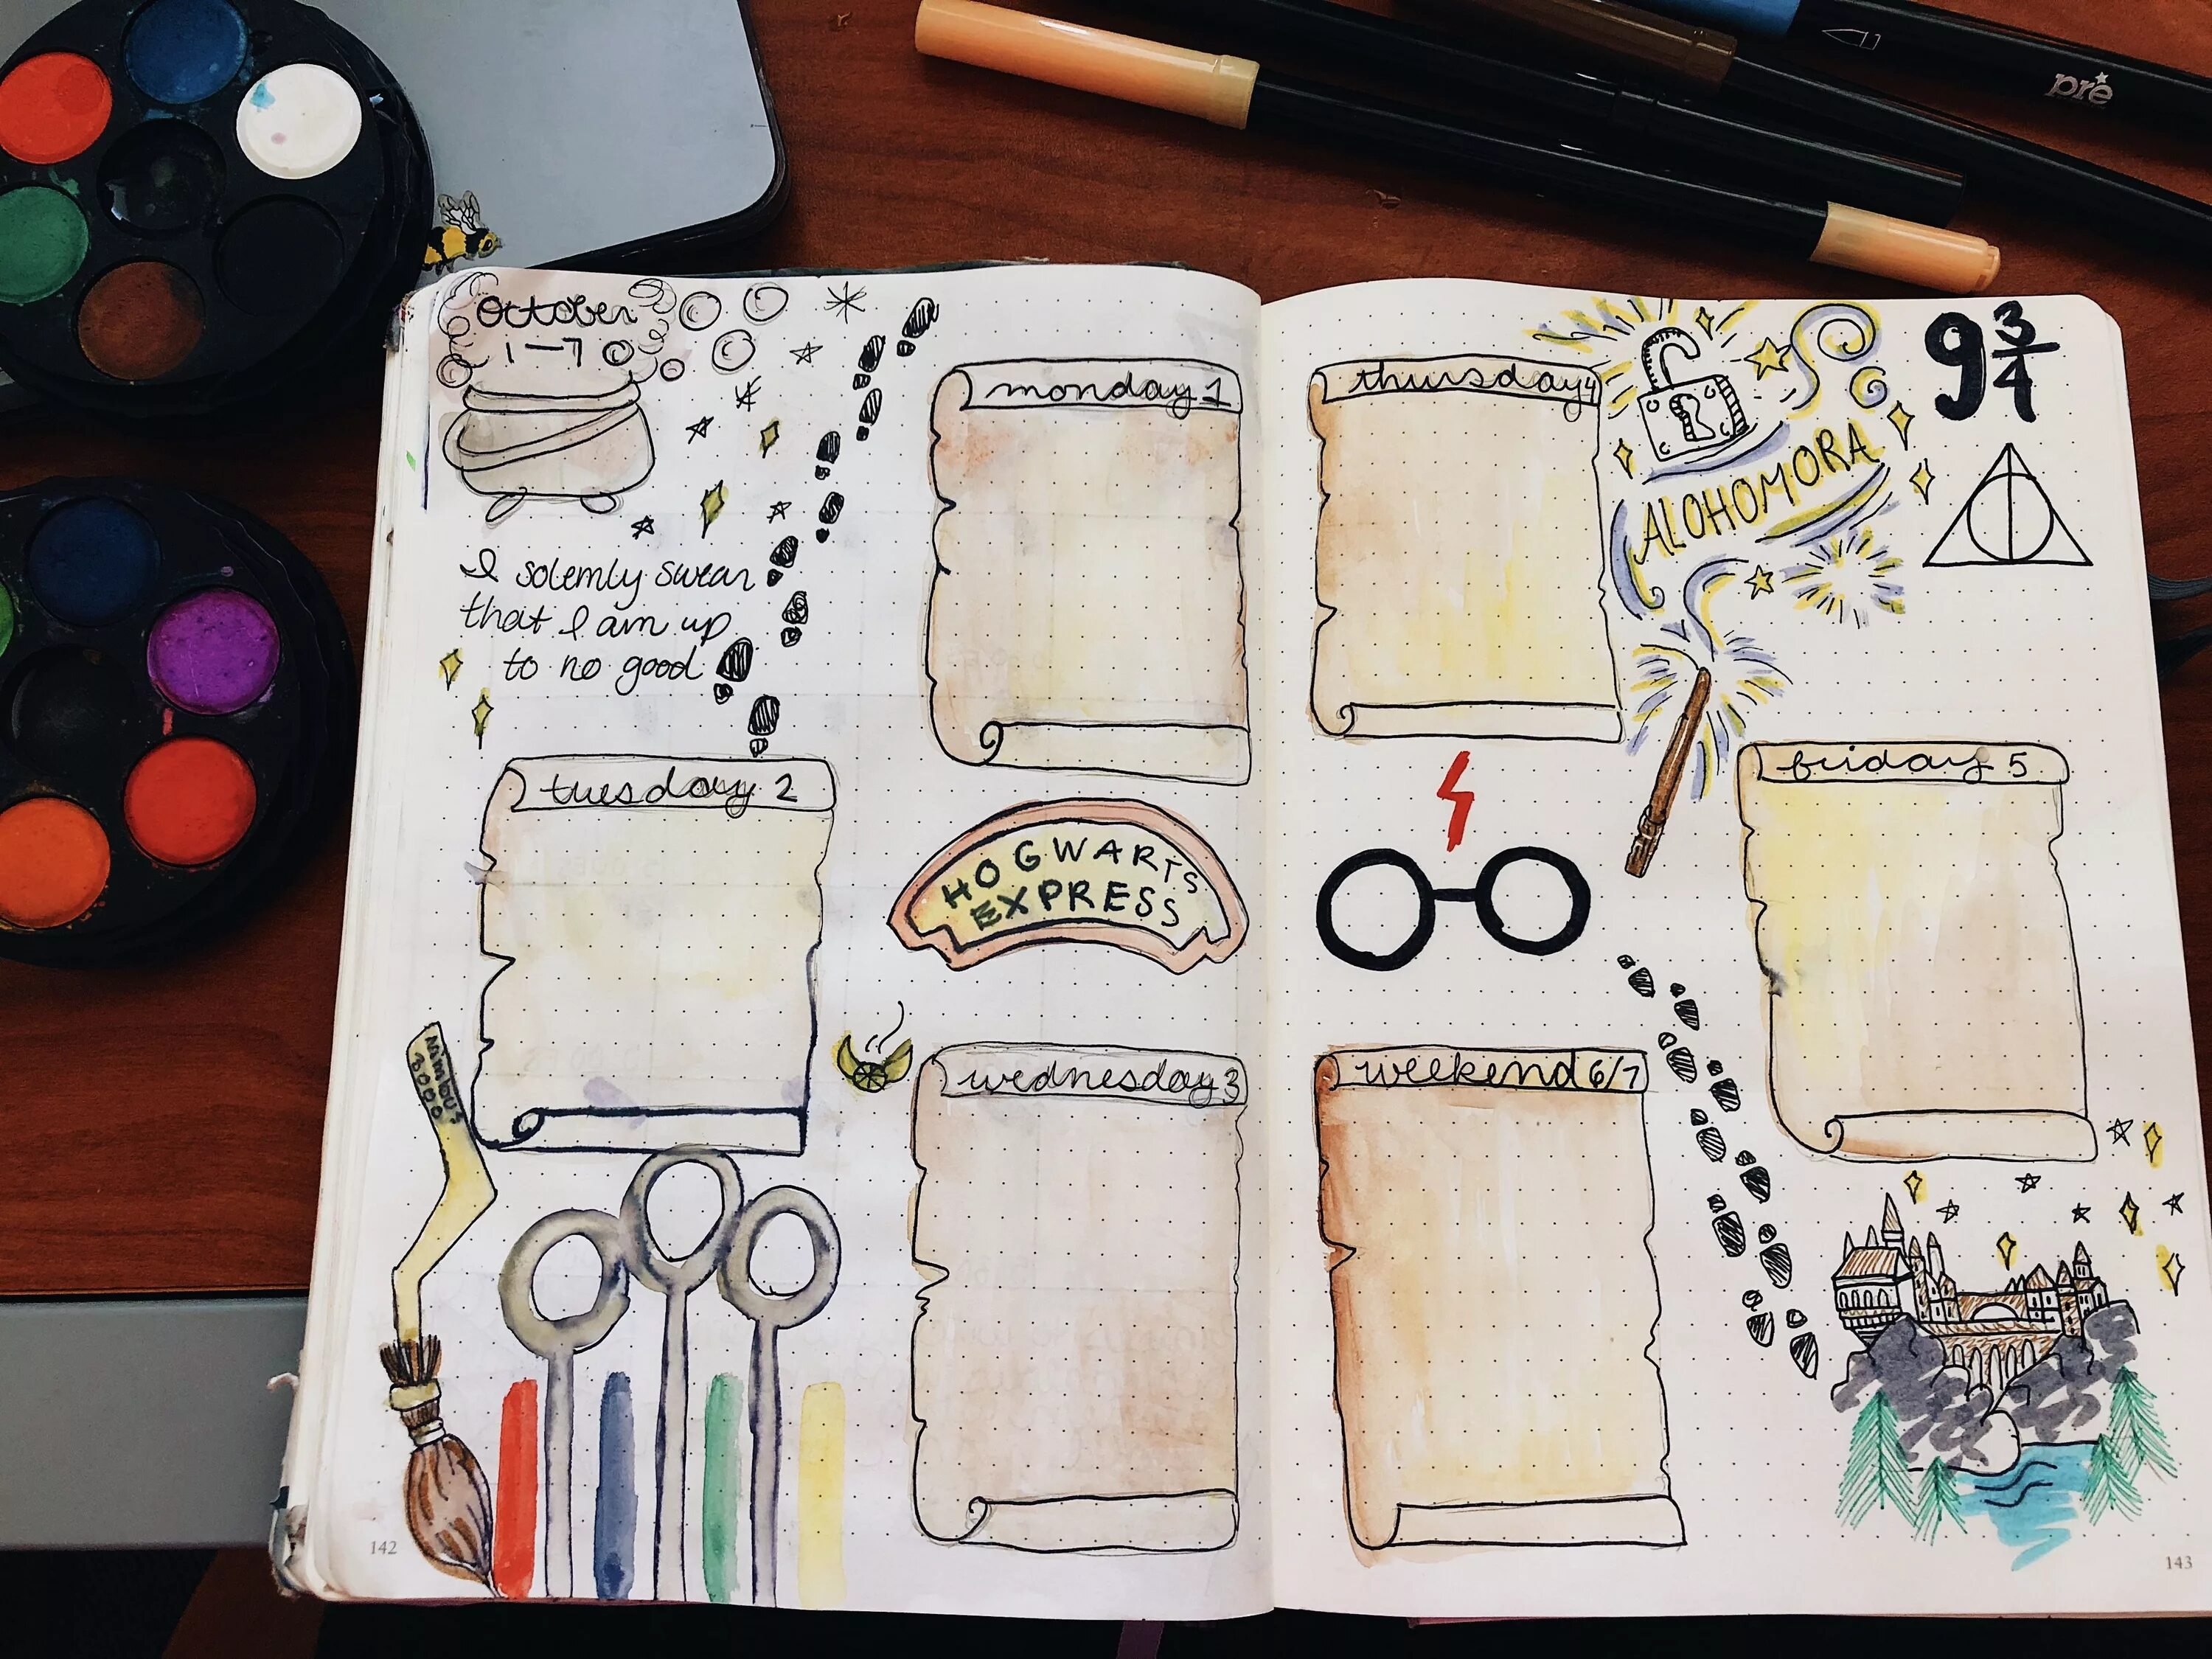 October
1-7
I solemnly swear
that I am up
to no good
monday 1
tuesday 2
HOGWARTS
EXPRESS
wednesday 3
Nimbus
3000
142
thursday 4
ALOHOMORA
9 3/4
friday 5
weekend 6/7
143
pre